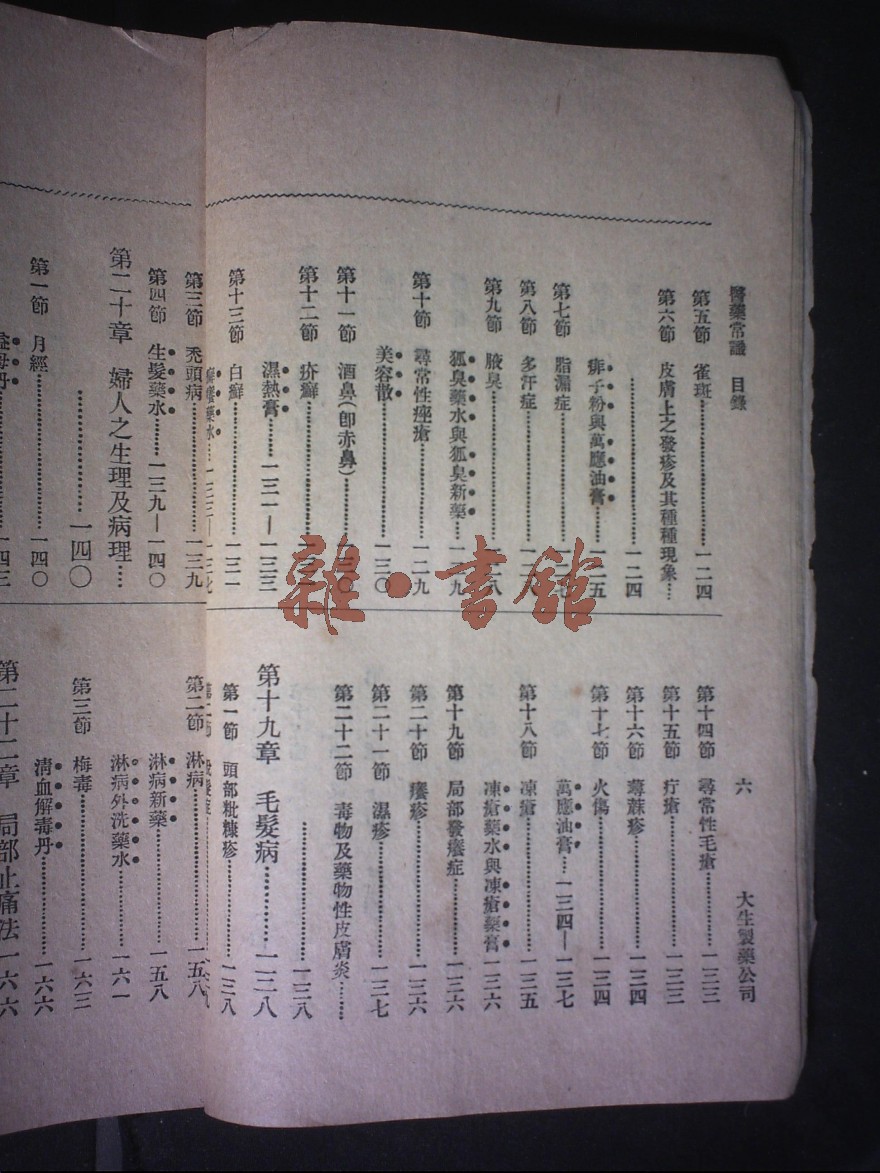 醫藥常識 目錄
六
大生製藥公司
第五節 雀斑……一二四
第六節 皮膚上之發疹及其種種現象……
……一二四
痱子粉與萬應油膏……一二五
第七節 脂漏症……一二七
第八節 多汗症……一二八
第九節 腋臭……一二八
狐臭藥水與狐臭新藥……一二九
第十節 尋常性痤瘡……一二九
美容散……一三〇
第十一節 酒鼻(卽赤鼻)……一三〇
第十二節 疥癬……
第十三節 白癬……一三一
濕熱膏……一三一—一三三
第十四節 尋常性毛瘡……一三三
第十五節 疔瘡……一三三
第十六節 蕁蔴疹……一三四
第十七節 火傷……一三四
萬應油膏……一三四—一三七
第十八節 凍瘡……一三五
凍瘡藥水與凍瘡藥膏……一三六
第十九節 局部發癢症……一三六
第二十節 癢疹……一三六
第二十一節 濕疹……一三七
第二十二節 毒物及藥物性皮膚炎……
……一三八
第十九章 毛髮病……一三八
第一節 頭部粃糠疹……一三八
第三節 禿頭病……一三九
第四節 生髮藥水……一三九—一四〇
第二十章 婦人之生理及病理……
……一四〇
第一節 月經……一四〇
益母丹……一四三
第二節 淋病……一五八
淋病新藥……一五八
淋病外洗藥水……一六一
第三節 梅毒……一六三
清血解毒丹……一六六
第二十二章 局部止痛法一六六
雜·書館